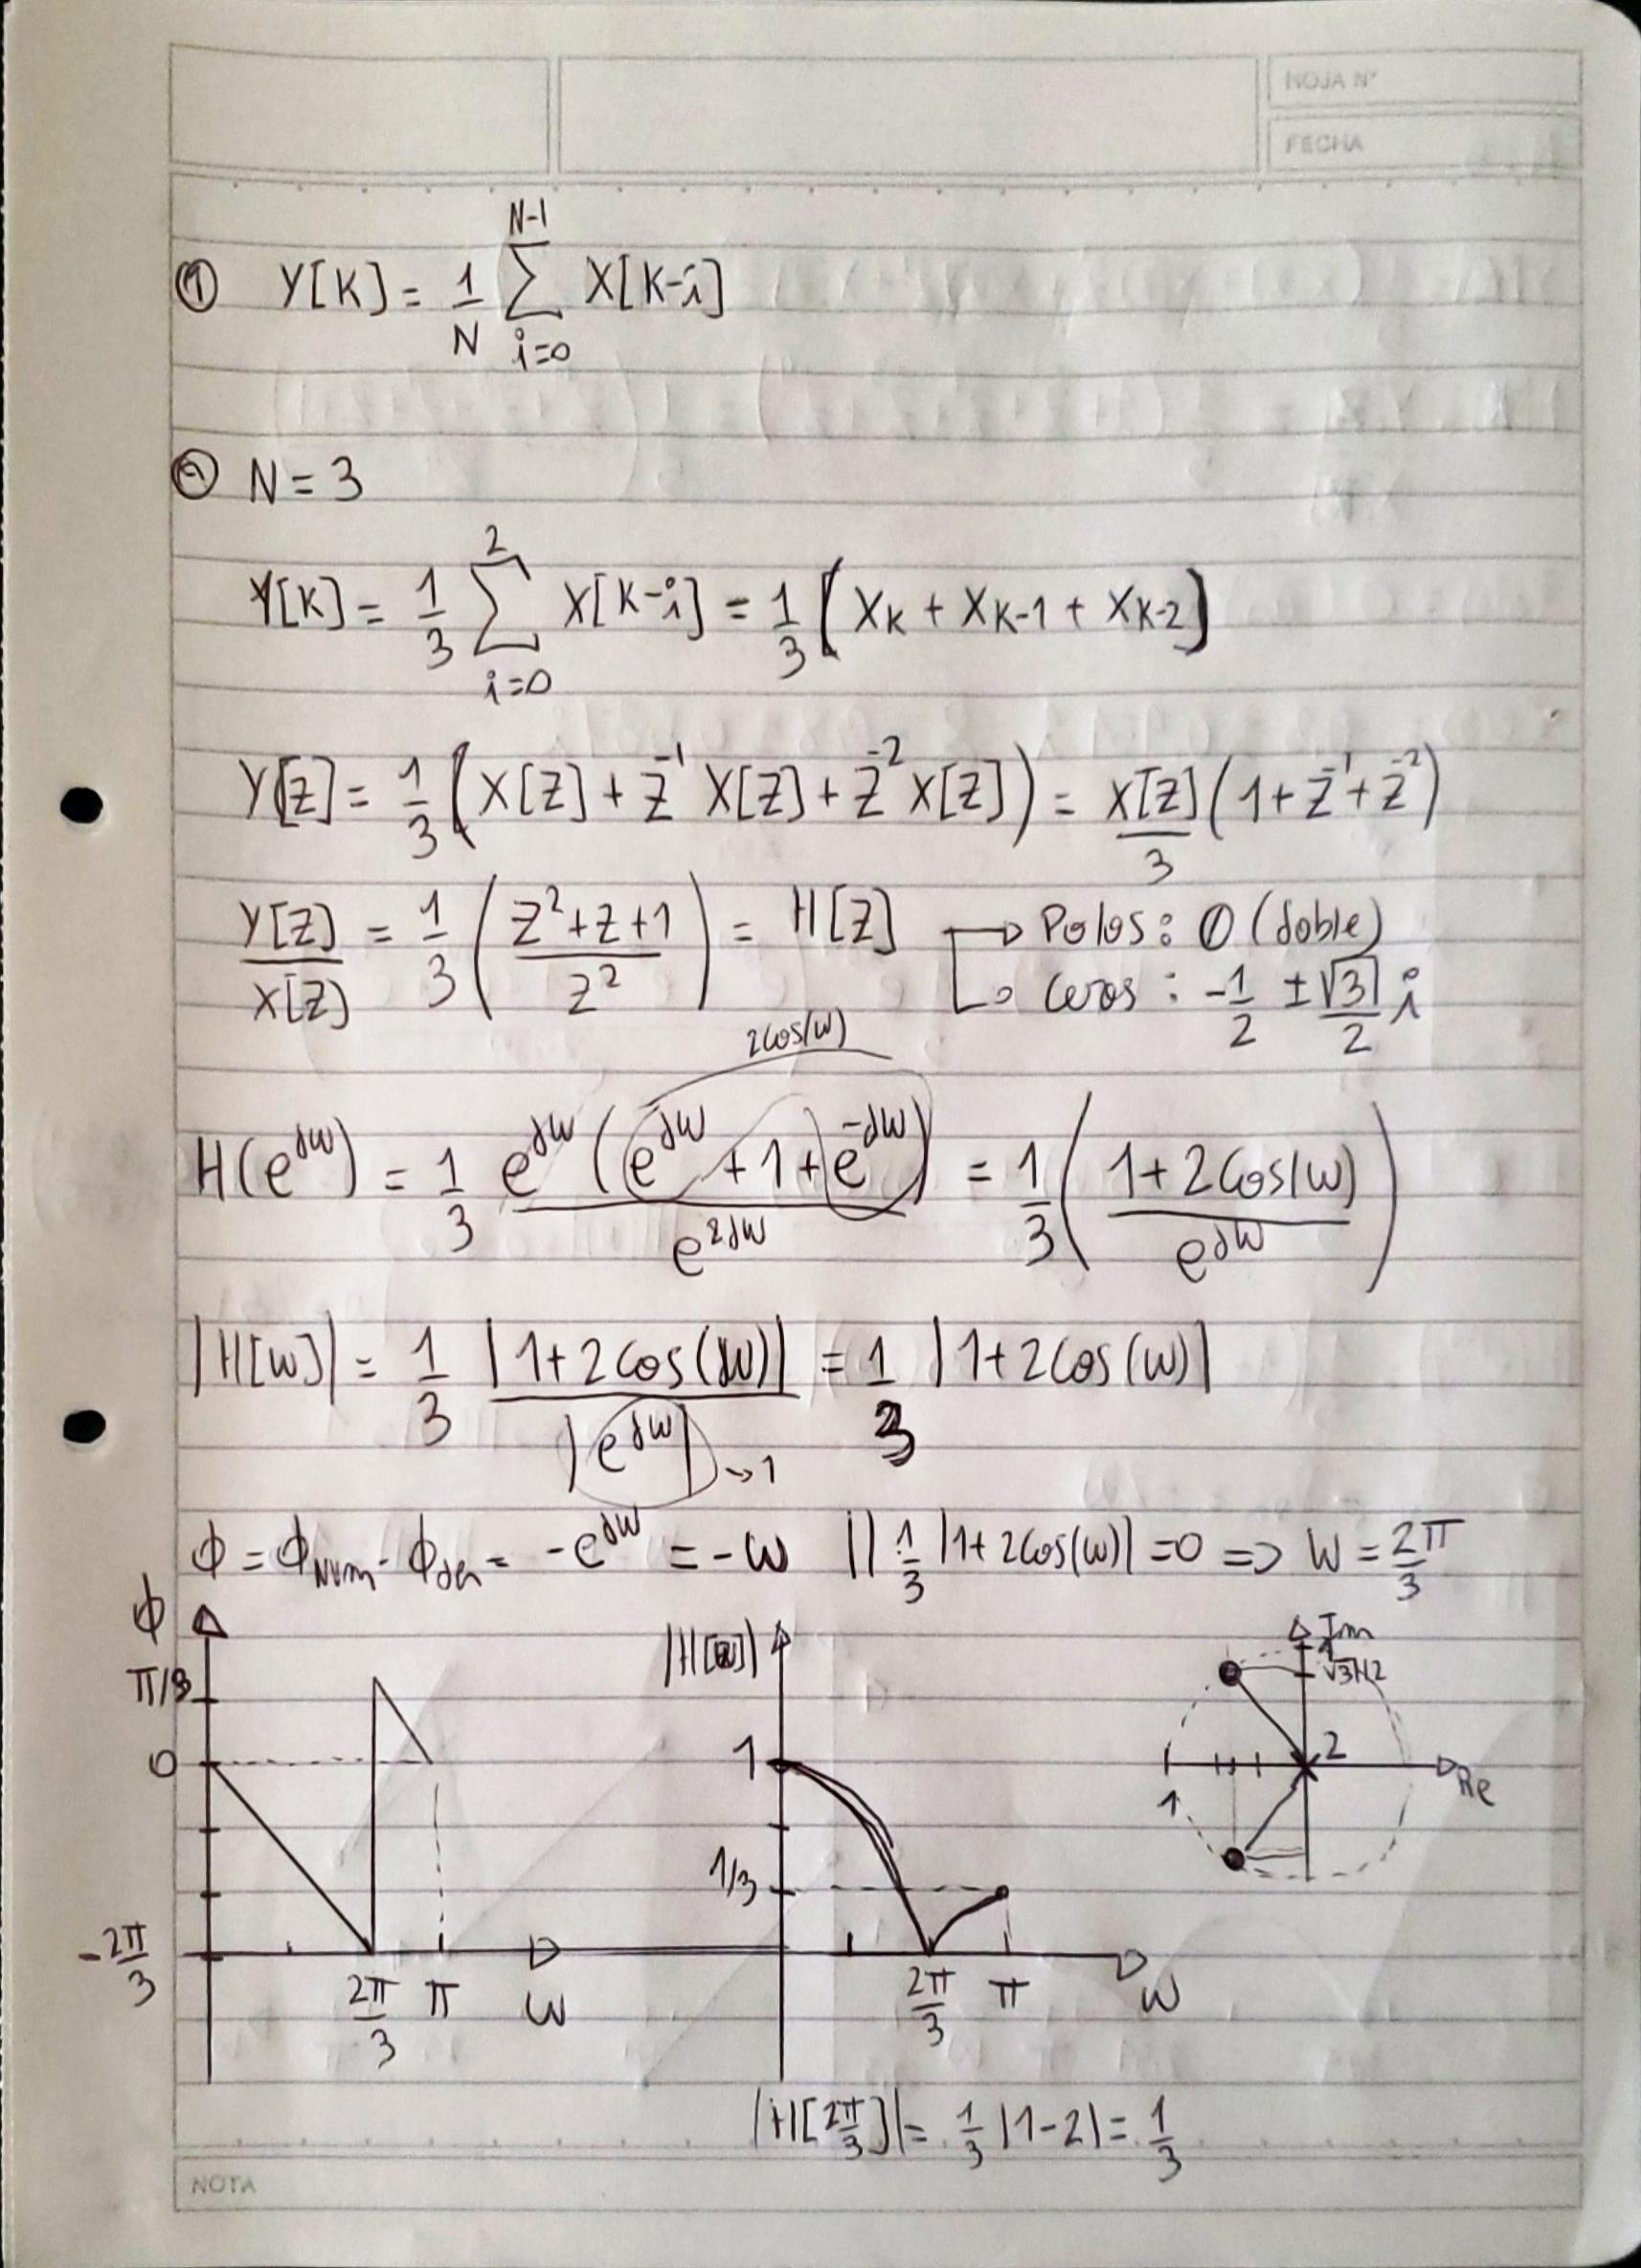 HOJA N°
FECHA
① Y[K] = 1/N ∑_{i=0}^{N-1} X[K-i]
② N = 3
Y[K] = 1/3 ∑_{i=0}^{2} X[K-i] = 1/3 [X_K + X_{K-1} + X_{K-2}]
Y[Z] = 1/3 (X[Z] + Z^{-1} X[Z] + Z^{-2} X[Z]) = X[Z]/3 (1 + Z^{-1} + Z^{-2})
Y[Z]/X[Z] = 1/3 (Z²+Z+1 / Z²) = H[Z] → Polos: 0 (doble)
→ Ceros: -1/2 ± √3/2 i
2Cos(W)
H(e^{jW}) = 1/3 e^{jW} (e^{jW} + 1 + e^{-jW}) / e^{2jW} = 1/3 (1+2Cos(W) / e^{jW})
|H[W]| = 1/3 |1+2Cos(W)| / |e^{jW}| → 1 = 1/3 |1+2Cos(W)|
ϕ = ϕ_Num - ϕ_den = -e^{jW} = -W || 1/3 |1+2Cos(W)| = 0 => W = 2π/3
ϕ
π/3
0
-2π/3
2π/3 π W
|H[W]|
1
1/3
2π/3 π W
Im
1
√3/2
2
Re
1
|H[2π/3]| = 1/3 |1-2| = 1/3
NOTA